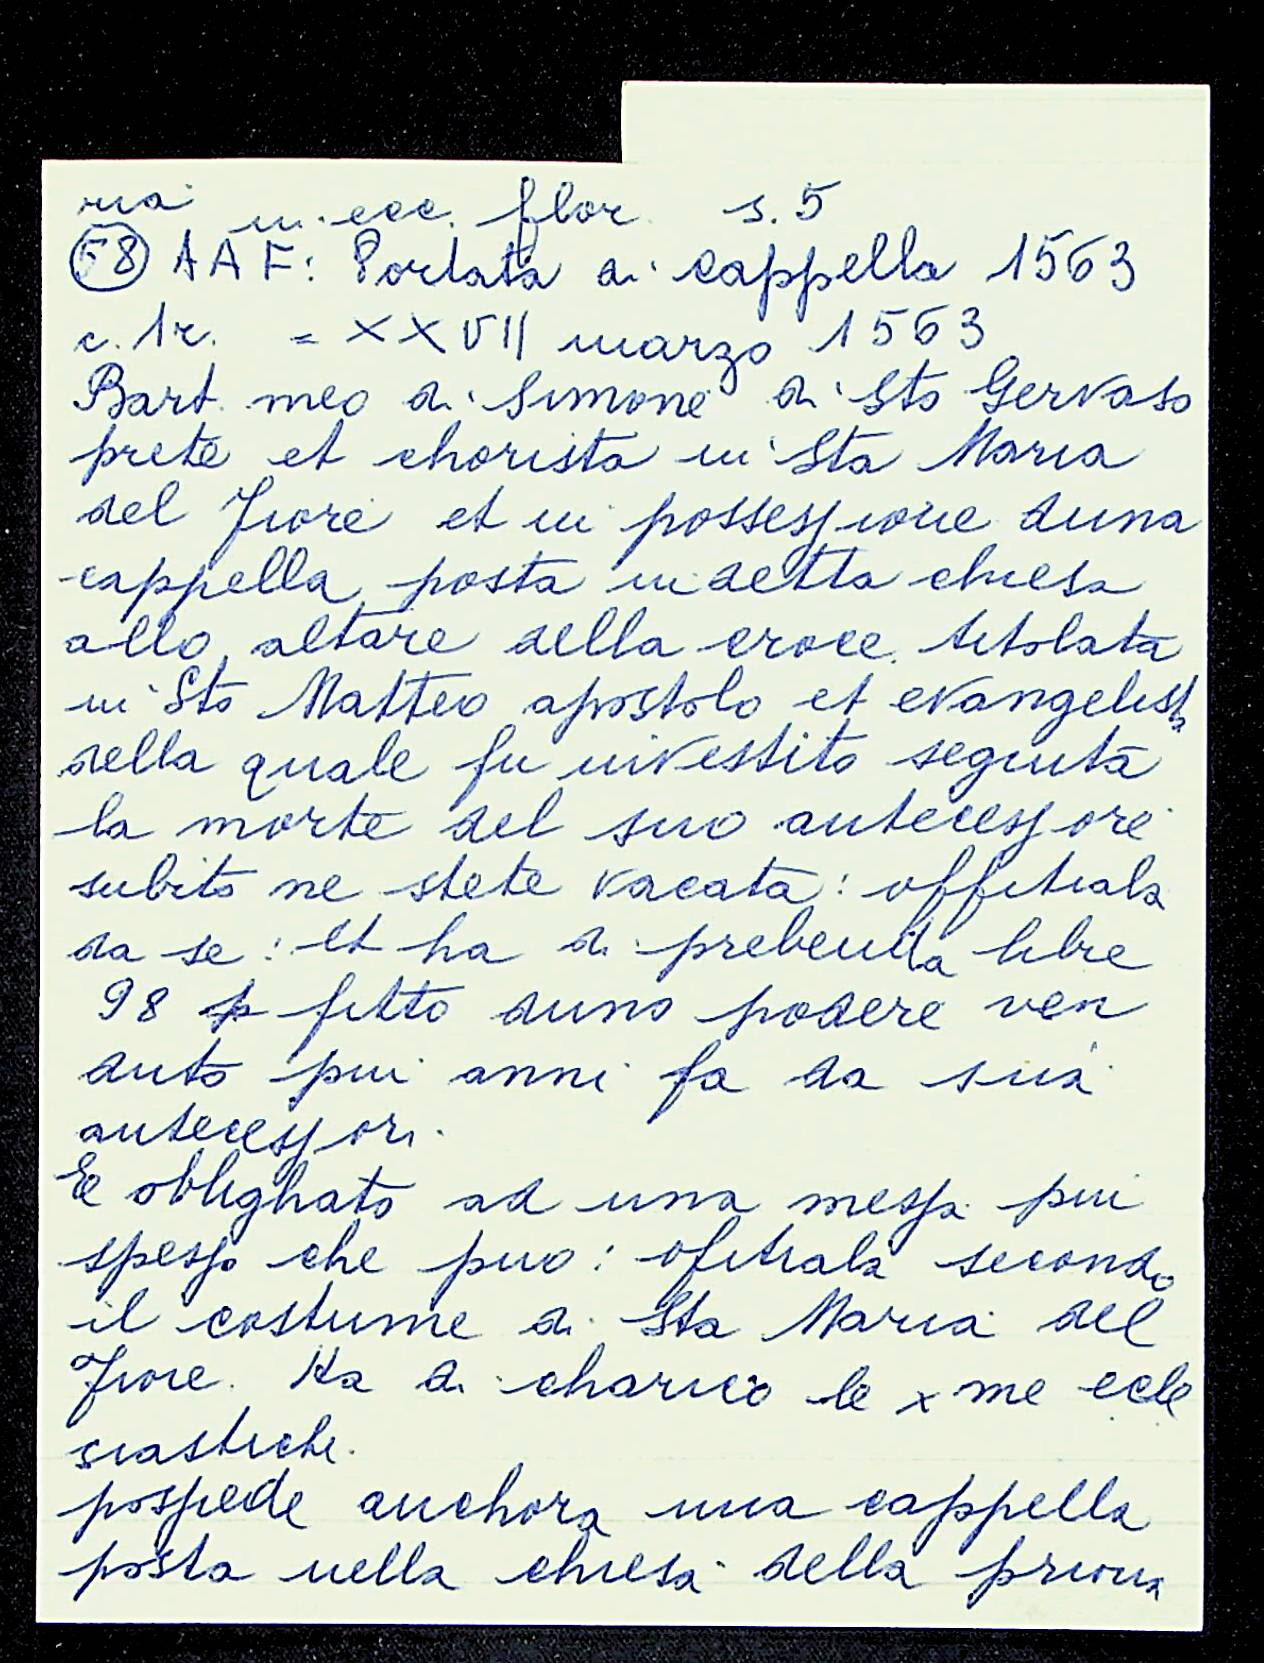 ria in ecc. flor. s. 5
58 AAF: Portata di cappella 1563
c. 1r. = XXVII marzo 1563
Bart.meo di Simone di Sto Gervaso
prete et chorista in Sta Maria
del Fiore et in possessione duna
cappella posta in detta chiesa
allo altare della croce titolata
in Sto Matteo apostolo et evangelista
della quale fu investito seguita
la morte del suo antecessore
subito ne stete vacata: offitiala
da se: et ha di prebenda libre
98 p fitto duno podere ven
duto piu anni fa da sua
antecessori.
E oblighato ad una messa piu
spesso che puo: ofitiala secondo
il costume di Sta Maria del
Fiore. Ha di charico le xme ecle
siastiche.
possede anchora una cappella
posta nella chiesa della prioria